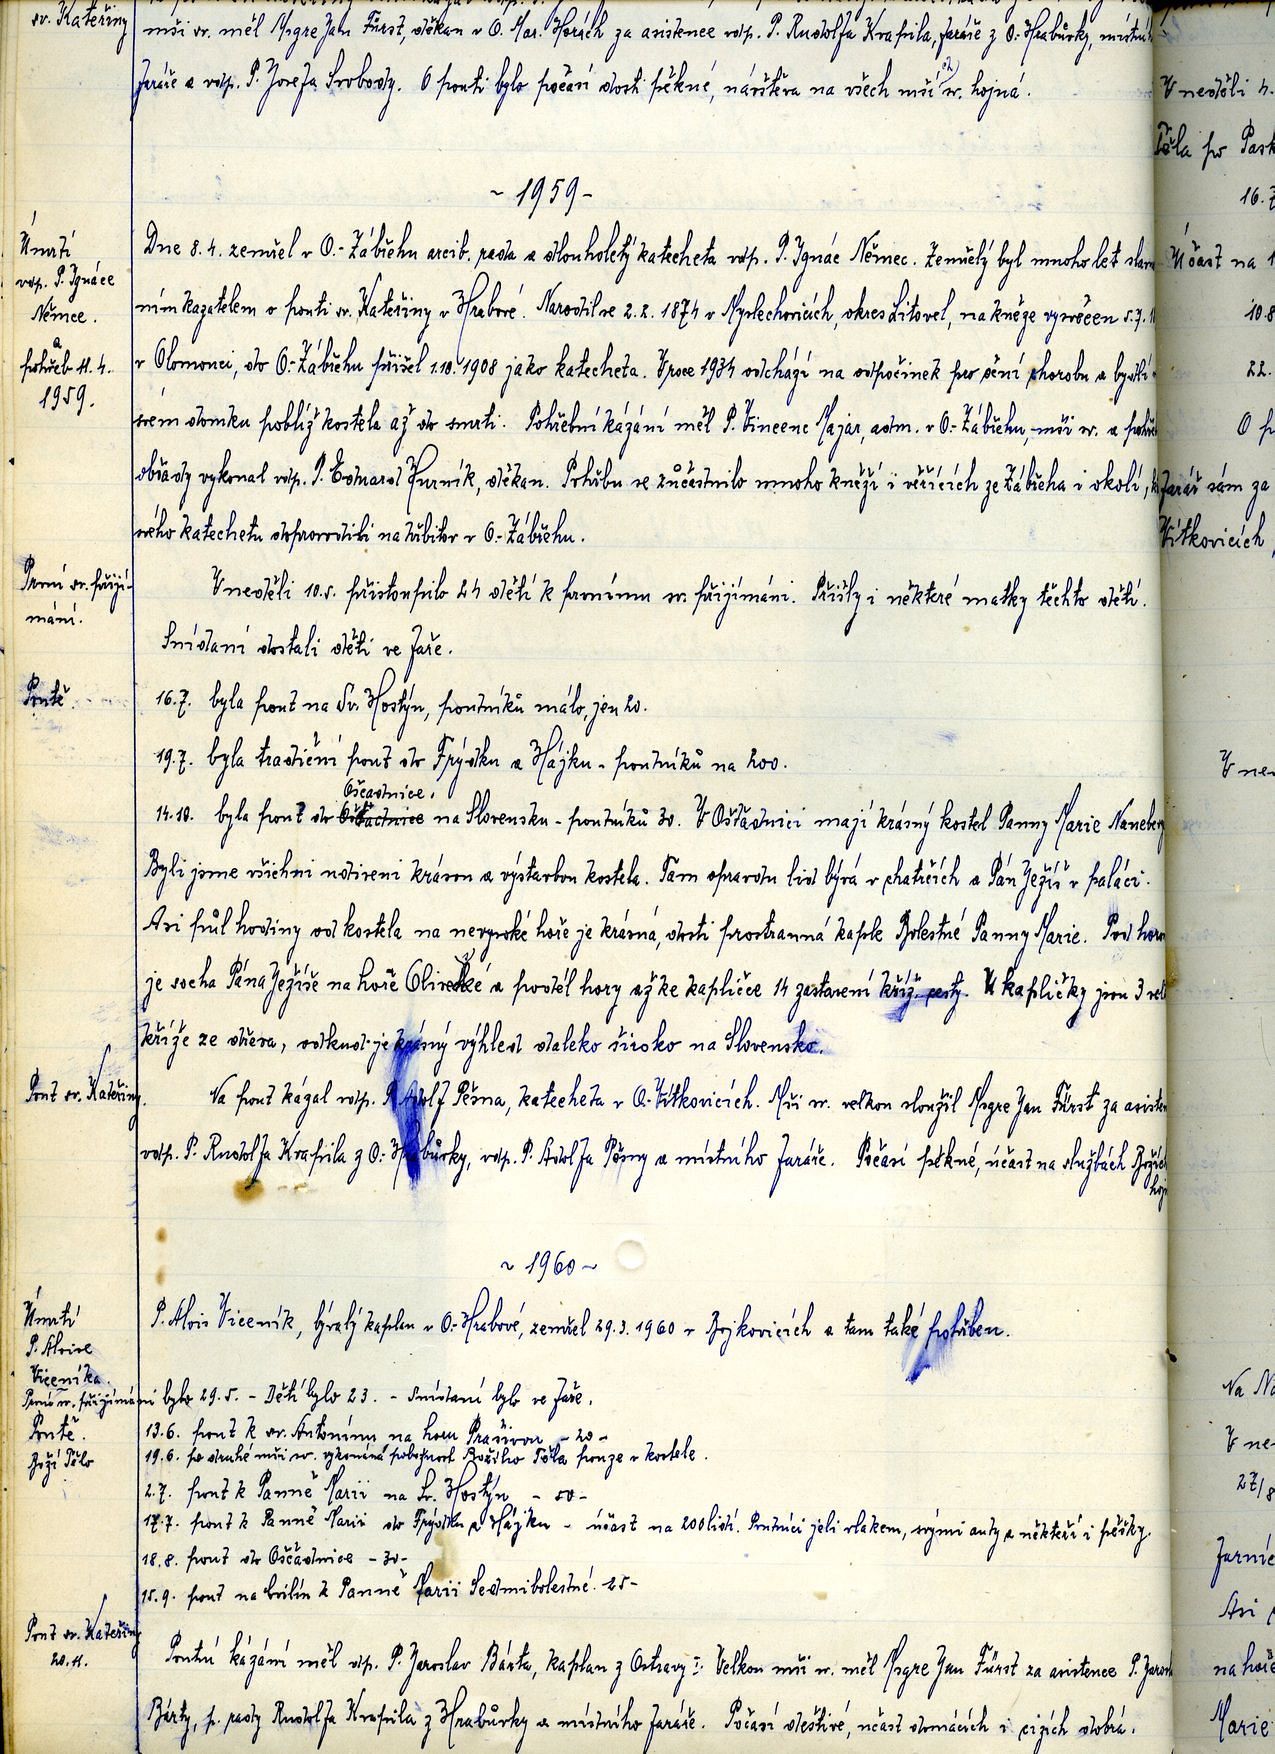 sv. Kateřiny
mši sv. měl Msgre Jan Fürst, děkan v O. Mar. Horách za asistence vdp. P. Rudolfa Krapila, faráře z O.-Hrabůvky, místní
faráře a vdp. P. Josefa Svobody. O pouti bylo počasí dosti pěkné, návštěva na všech mších sv. hojná.
~ 1959 -
Úmrtí
vdp. P. Ignáce
Němce.
a
pohřeb 11.4.
1959.
Dne 8.4. zemřel v O.-Zábřehu arcib. rada a dlouholetý katecheta vdp. P. Ignác Němec. Zemřelý byl mnoho let slav
ním kazatelem o pouti sv. Kateřiny v Hrabové. Narodil se 2.2. 1874 v Myslechovicích, okres Litovel, na kněze vysvěcen 5.7. 1
v Olomouci, do O.-Zábřehu přišel 1.10. 1908 jako katecheta. V roce 1934 odchází na odpočinek pro oční chorobu a bydlí
svém domku poblíž kostela až do smrti. Pohřební kázání měl P. Vincenc Majar, adm. v O.-Zábřehu, mši sv. a pohř
obřady vykonal vdp. P. Eduard Furník, děkan. Pohřbu se zůčastnilo mnoho kněží i věřících ze Zábřeha i okolí,
svého katechetu doprovodili na hřbitov v O.-Zábřehu.
První sv. přijí-
mání.
V neděli 10.5. přistoupilo 24 dětí k prvnímu sv. přijímání. Přišly i některé matky těchto dětí.
Snídani dostali děti ve faře.
Poutě.
16.7. byla pouť na Sv. Hostýn, poutníků málo, jen 20.
19.7. byla tradiční pouť do Frýdku a Hájku - poutníků na 200.
Oščadnice.
14.10. byla pouť do Oščadnice na Slovensku - poutníků 30. V Oščadnici mají krásný kostel Panny Marie Naneb
Byli jsme všichni udiveni krásou a výstavbou kostela. Tam opravdu lid bývá v chatrčích a Pán Ježíš v paláci.
Asi půl hodiny od kostela na nevysoké hoře je krásná, dosti prostranná kaple Bolestné Panny Marie. Pod horou
je socha Pána Ježíše na hoře Olivetské a podél hory až ke kapličce 14 zastavení kříž. cesty. U kapličky jsou 3 vel
kříže ze dřeva, odkud je krásný výhled daleko široko na Slovensko.
Pouť sv. Kateřiny.
Na pouť kázal vdp. P. Adolf Pešna, katecheta v O.-Vítkovicích. Mši sv. velkou sloužil Msgre Jan Fürst za asisten
vdp. P. Rudolfa Krapila z O.-Hrabůvky, vdp. P. Adolfa Pěšny a místního faráře. Počasí pěkné, účast na službách Božích
hoj
~ 1960 ~
Úmrtí
P. Aloise
Viceníka.
P. Alois Viceník, bývalý kaplan v O.-Hrabové, zemřel 29.3. 1960 v Bojkovicích a tam také pohřben.
První sv. přijímání bylo 29.5. - Dětí bylo 23. - Snídaní bylo ve faře.
Poutě.
13.6. pouť k sv. Antonínu na horu Prašivou - 20 -
Boží Tělo
19.6. po druhé mši sv. vykonána pobožnost Božího Těla pouze v kostele.
2.7. pouť k Panně Marii na Sv. Hostýn - 50 -
17.7. pouť k Panně Marii do Frýdku a Hájku - účast na 200 lidí. Poutníci jeli vlakem, svými auty a někteří i pěšky.
18.8. pouť do Oščadnice - 30 -
15.9. pouť na Cvilín k Panně Marii Sedmibolestné. 25 -
Pouť sv. Kateřiny
20.11.
Poutní kázání měl vdp. P. Jaroslav Bárta, kaplan z Ostravy I. Velkou mši sv. měl Msgre Jan Fürst za asistence P. Jarosl
Bárty, p. rady Rudolfa Krapila z Hrabůvky a místního faráře. Počasí deštivé, účast domácích i cizích dobrá.
V neděli 4.
Těla po Pask
16.7
Účast na 1
10.8
22.
O p
farář sám za
Vítkovicích
V ne
Na No
V ne
27/8
farníc
Asi
na hoře
Marie